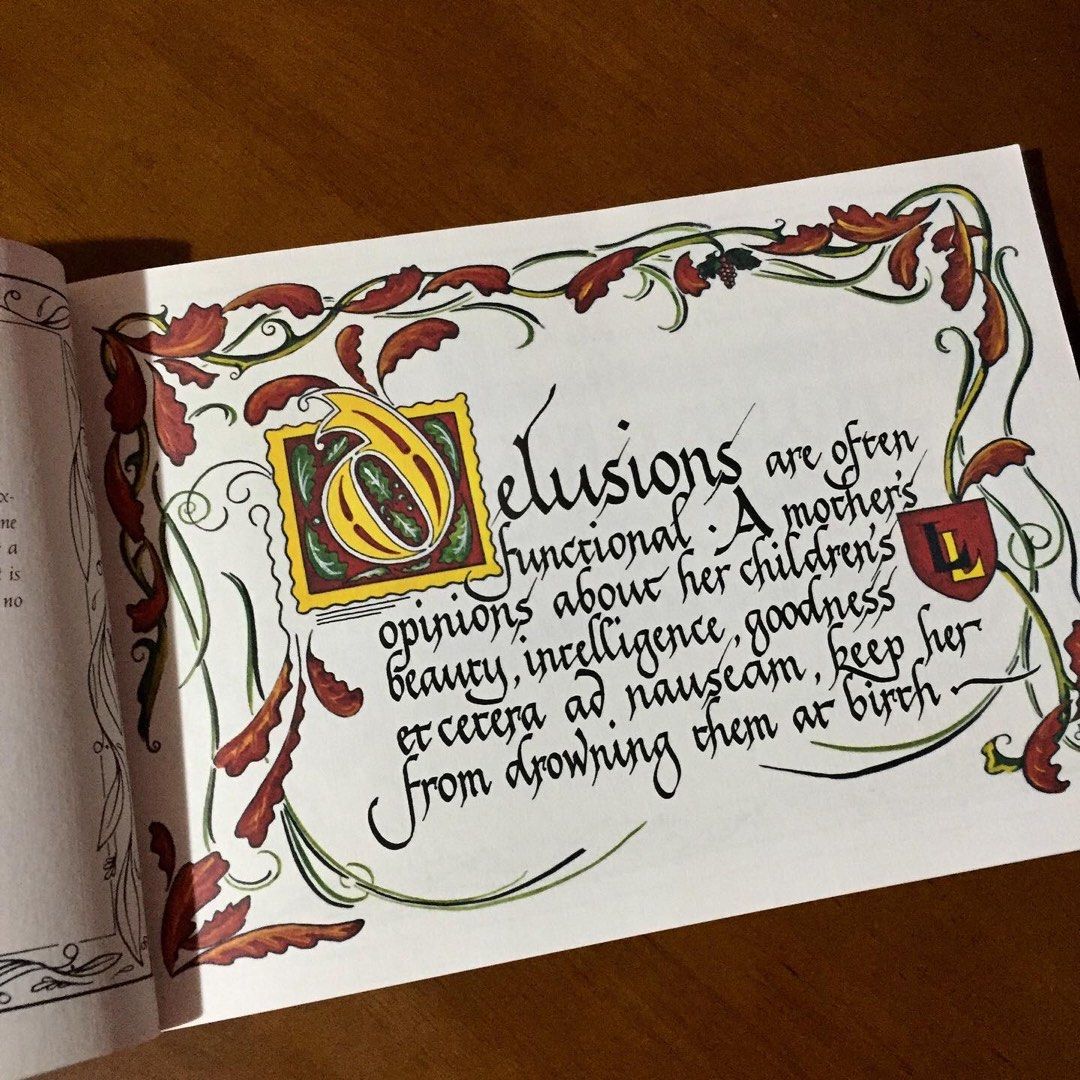 x-
ne
a
t is
no
Delusions are often
functional. A mother's
opinions about her children's
beauty, intelligence, goodness
et cetera ad nauseam, keep her
from drowning them at birth.
LL